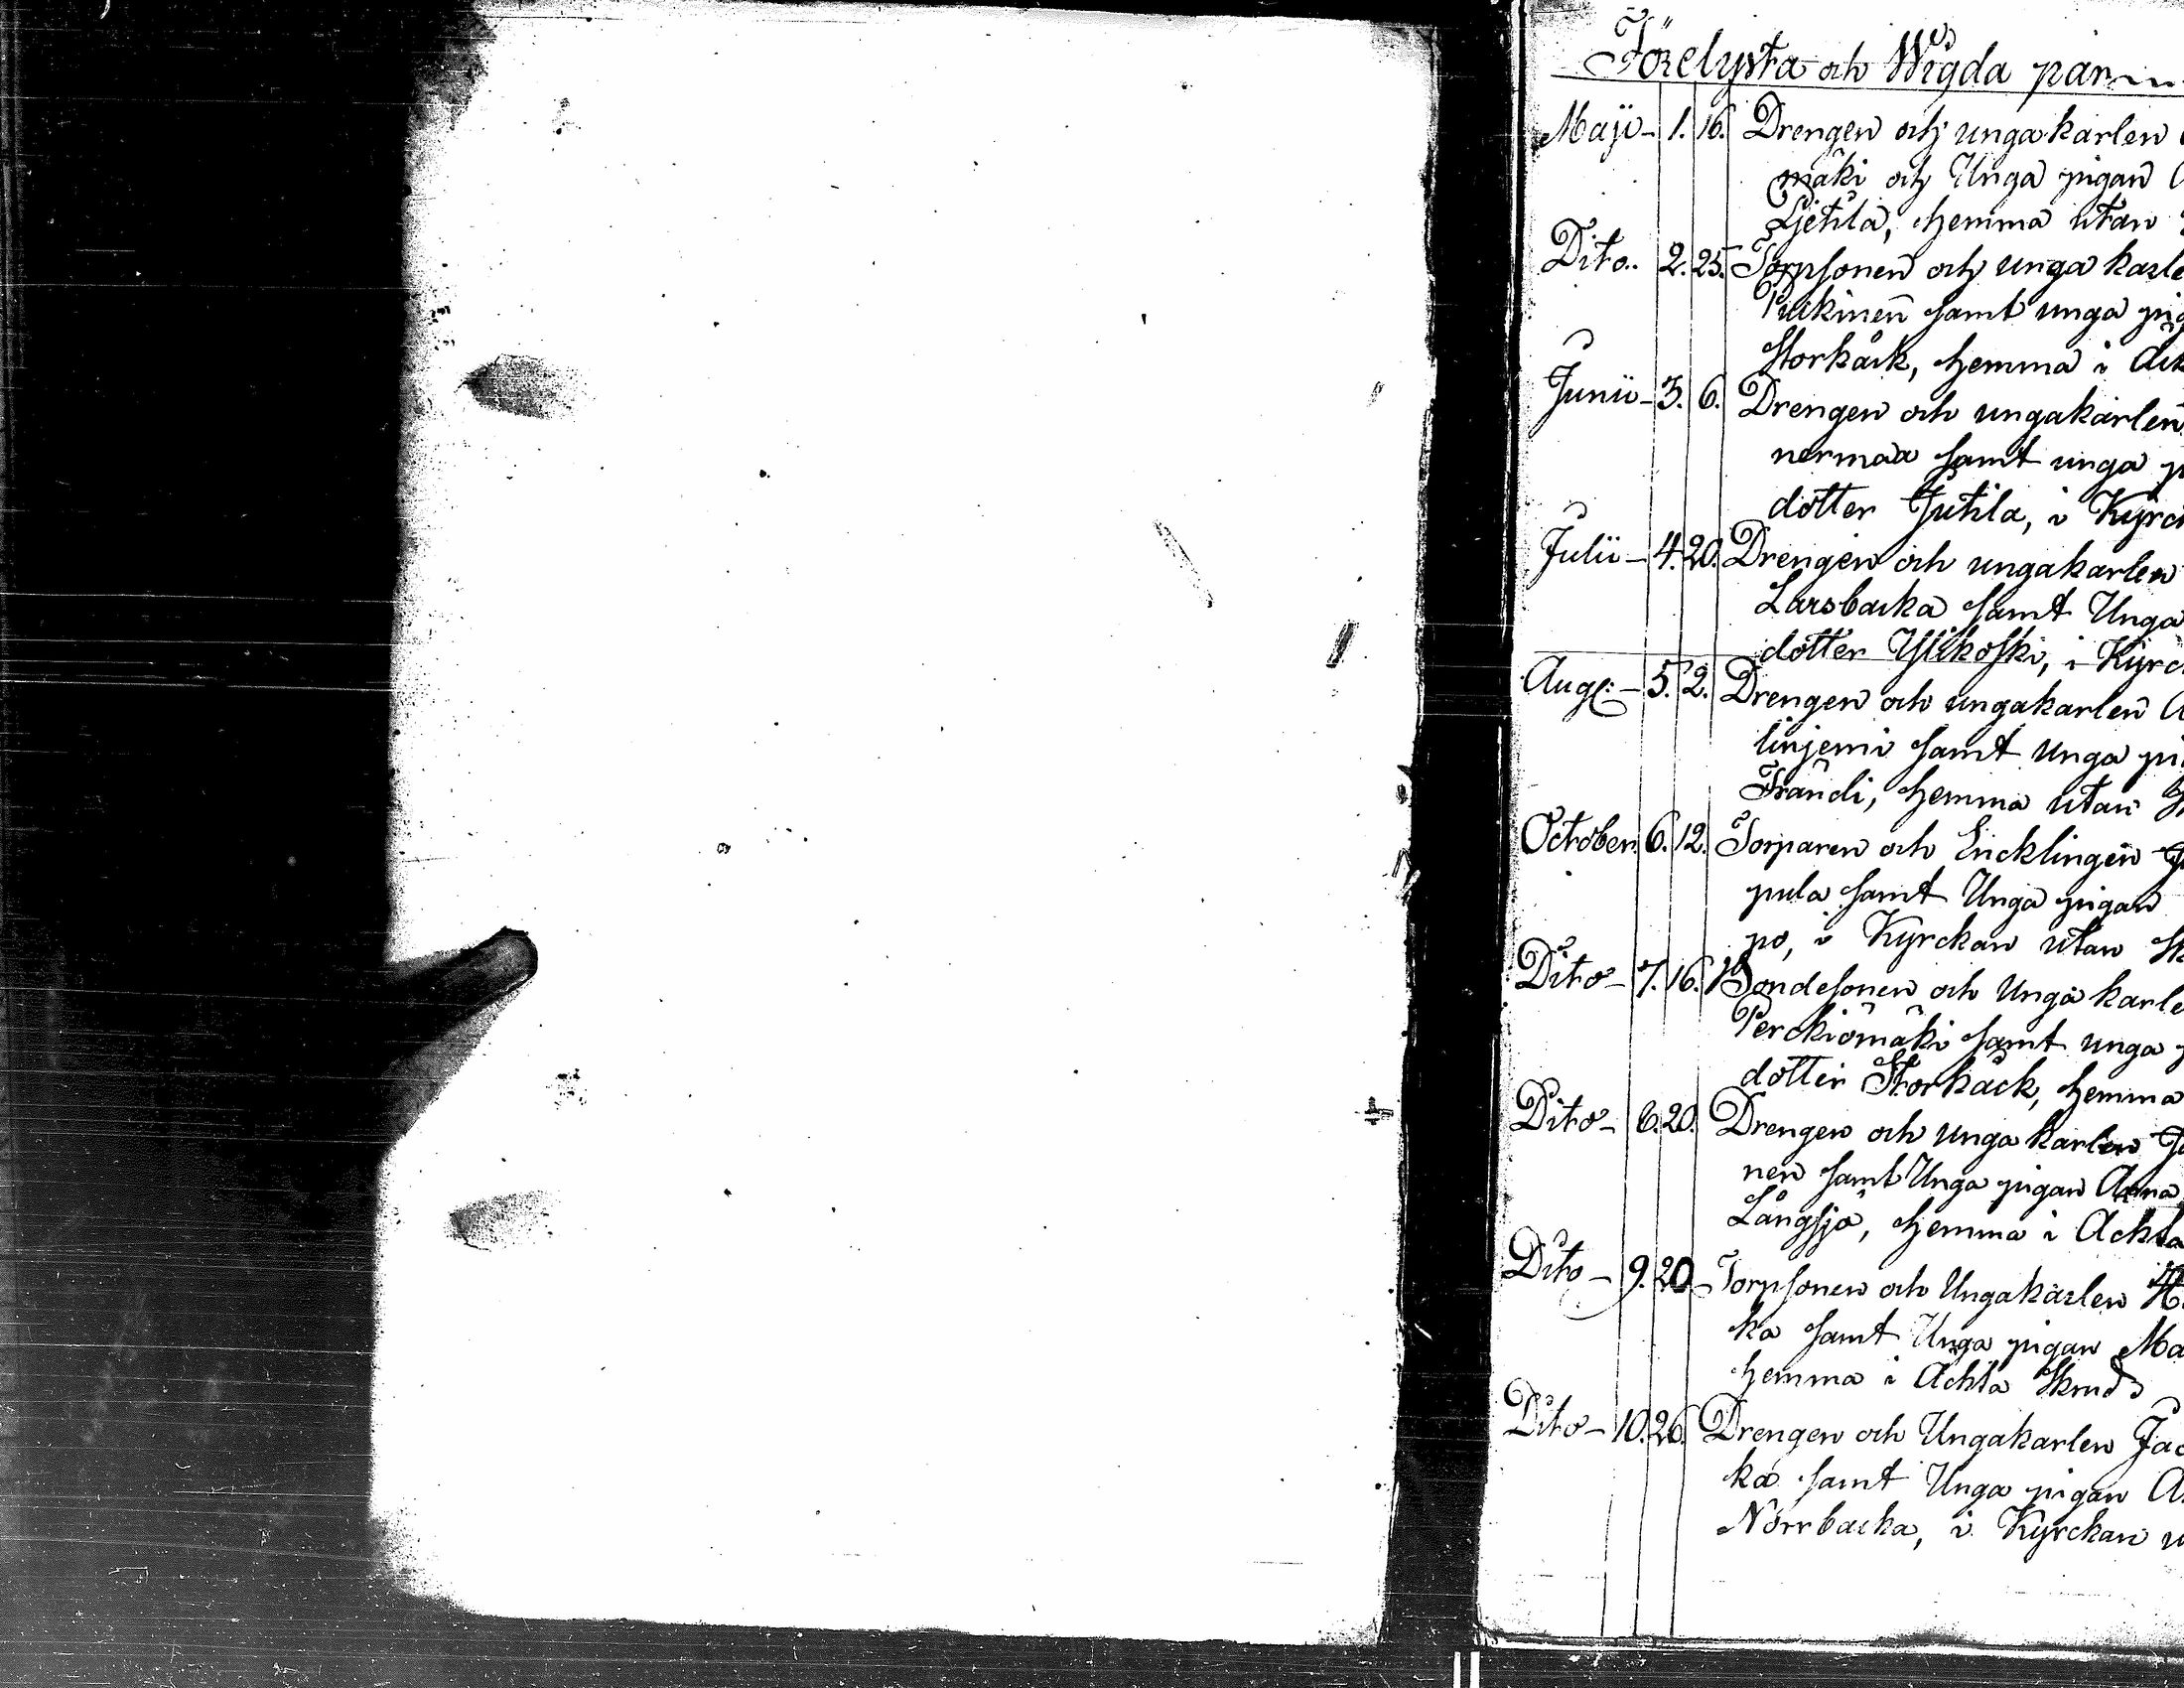 Förelysta och Wigda par
Maji - 1. 16. Drengen och unga karlen
mäki och Unga pigan
Ljetila, hemma utan
Dito.. 2. 25. Torpsonen och unga karle
Pukinen samt unga pig
Storkäck, hemma i
Junii - 3. 6. Drengen och ungakarlen
nermaa samt unga p
dotter Jutila, i Kyrc
Julii - 4. 20. Drengen och ungakarlen
Larsbacka samt Unga
dotter Ylikoski, i Kyrc
Aug: - 5. 2. Drengen och ungakarlen A
linjemi samt unga pi
Frändi, hemma utan
October. 6. 12. Torparen och Encklingen
pula samt Unga pigan
po, i Kyrckan utan Sk
Dito - 7. 16. Bondesonen och Unga karle
Perckiömäki samt unga p
dotter Storkäck, hemma
Dito - 8. 20. Drengen och unga karlen
nen samt Unga pigan Anna
Långsjö, hemma i Ackta
Dito - 9. 20 - Torpsonen och Ungakarlen
ka samt Unga pigan Ma
hemma i Ackta Skrud
Dito - 10. 26. Drengen och Ungakarlen Jac
ka samt Unga pigan A
Norrbacka, i Kyrckan u